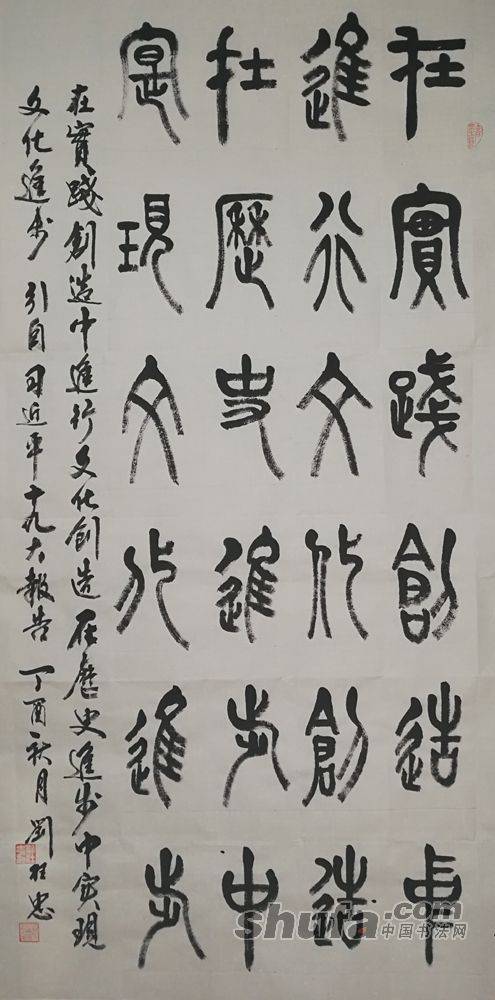 在實踐創造中
進行文化創造
在歷史進步中
寔現文化進步
在實踐創造中進行文化創造在歷史進步中实現
文化進步 引自习近平十九大報告 丁酉秋月 劉在忠
shufa.com
中国书法网